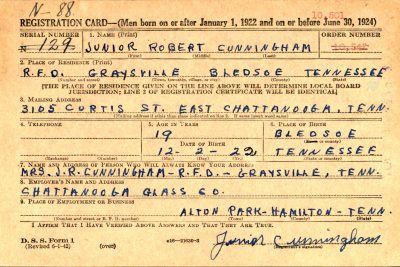 N-88
REGISTRATION CARD—(Men born on or after January 1, 1922 and on or before June 30, 1924)
SERIAL NUMBER 1. NAME (Print) ORDER NUMBER
N 129 JUNIOR ROBERT CUNNINGHAM
(First) (Middle) (Last)
2. PLACE OF RESIDENCE (Print)
R.F.D. GRAYSVILLE BLEDSOE TENNESSEE
(Number and street) (Town, township, village, or city) (County) (State)
[THE PLACE OF RESIDENCE GIVEN ON THE LINE ABOVE WILL DETERMINE LOCAL BOARD
JURISDICTION; LINE 2 OF REGISTRATION CERTIFICATE WILL BE IDENTICAL]
3. MAILING ADDRESS
3105 CURTIS ST. EAST CHATTANOOGA, TENN.
[Mailing address if other than place indicated on line 2. If same insert word same]
4. TELEPHONE 5. AGE IN YEARS 6. PLACE OF BIRTH
19 BLEDSOE
DATE OF BIRTH (Town or county)
12-2-22 TENNESSEE
(Exchange) (Number) (Mo.) (Day) (Yr.) (State or country)
7. NAME AND ADDRESS OF PERSON WHO WILL ALWAYS KNOW YOUR ADDRESS
MRS. J.R. CUNNINGHAM-R.F.D.- GRAYSVILLE, TENN.
8. EMPLOYER'S NAME AND ADDRESS
CHATTANOOGA GLASS CO.
9. PLACE OF EMPLOYMENT OR BUSINESS
ALTON PARK-HAMILTON-TENN.
(Number and street or R. F. D. number) (Town) (County) (State)
I AFFIRM THAT I HAVE VERIFIED ABOVE ANSWERS AND THAT THEY ARE TRUE.
D. S. S. Form 1
(Revised 6-1-42) (over) Junior Cunningham
(Registrant's signature)